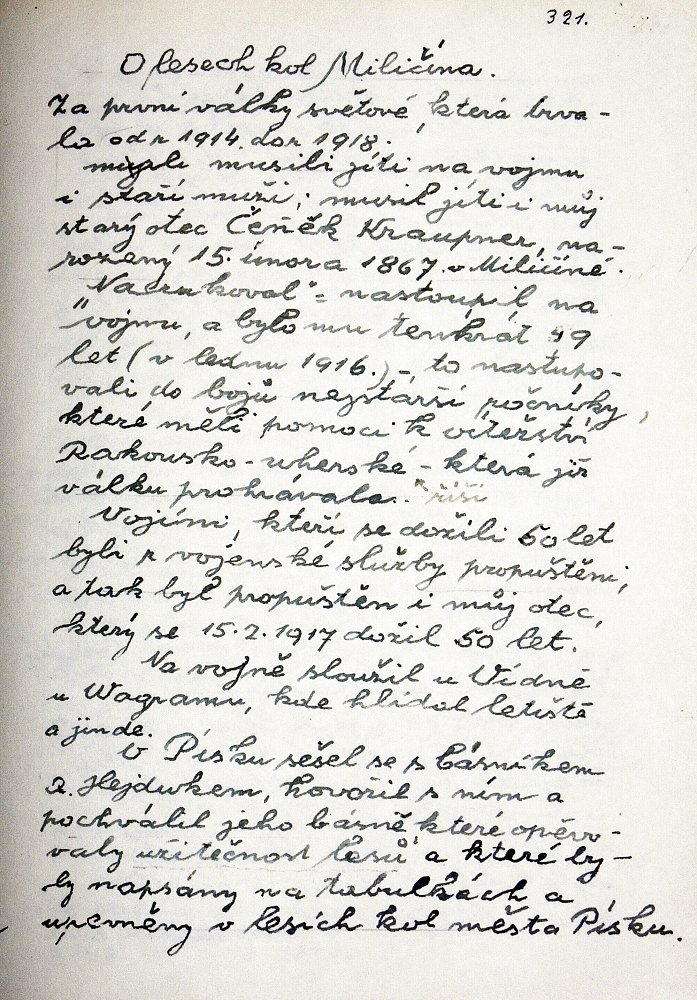 321.
O lesech kol Miličína.
Za první války světové, která trva-
la od r 1914. do r 1918.
musili jíti na vojnu
i staří muži; musil jíti i můj
starý otec Čeněk Kraupner, na-
rozený 15. února 1867. v Miličíně.
"Narukoval" = nastoupil na
vojnu, a bylo mu tenkrát 49
let (v lednu 1916.) -, to nastupo-
vali do bojů nejstarší ročníky,
které měli pomoci k vítězství
Rakousko-uherské - která již
válku prohrávala. říši
Vojíni, kteří se dožili 50 let
byli z vojenské služby propuštěni,
a tak byl propuštěn i můj otec,
který se 15.2.1917 dožil 50 let.
Na vojně sloužil u Vídně
u Wagramu, kde hlídal letiště
a jinde.
V Písku sešel se s básníkem
A. Hejdukem, hovořil s ním a
pochválil jeho básně, které opěvo-
valy užitečnost lesů, a které by-
ly napsány na tabulkách a
upevněny v lesích kol města Písku.